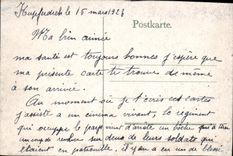 le 15 mars 1924
Postkarte.
Ma bien aimée
ma santé est toujours bonnes j'espère que
ma présente carte te trouve de même
à son arrivée.
Au moment où je t'écris est cartes
j'assiste a un cinema vivant, le regiment
qui occupe le pays vient d'arrêté un boche
deux de leurs soldats qui
étaient en patrouille, il y en a eu un de